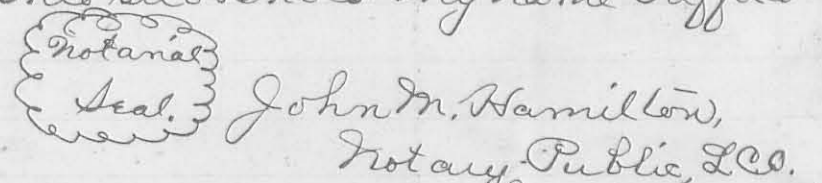 my name
Notarial
Seal.
John M. Hamilton,
Notary Public, L.C.O.